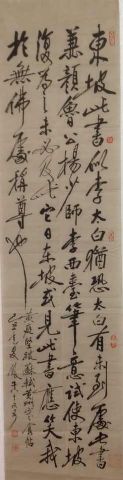 東坡此書似李太白猶恐太白有未到處此書
兼顏魯公楊少師李西臺筆意試使東坡
復為之未必及此它日東坡或見此書應笑我
於無佛處稱尊也
黃庭堅跋蘇軾黃州寒食帖